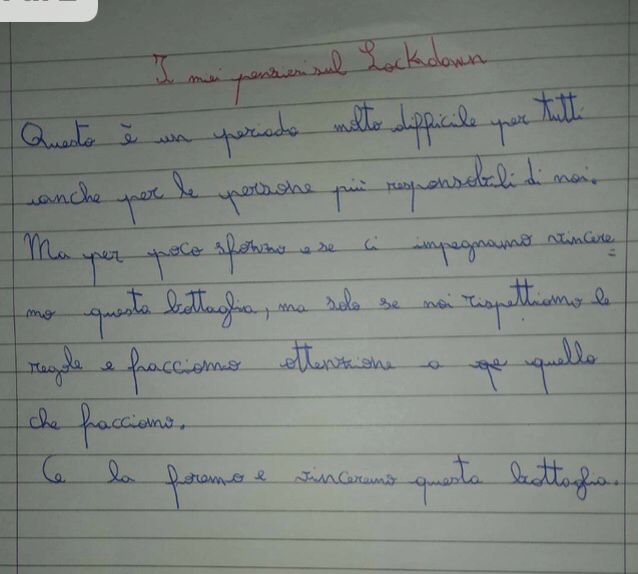 I miei pensieri sul Lockdown
Questo è un periodo molto difficile per tutti
anche per le persone più responsabili di noi.
Ma per poco sforzo e se ci impegnamo vincere=
mo questa battaglia, ma solo se noi rispettiamo le
regole e facciamo attenzione a quello
che facciamo.
Ce la faremo e vinceremo questa battaglia.